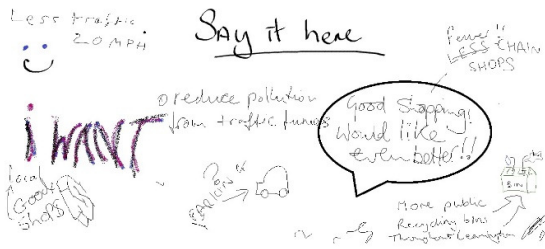 Less traffic
20 MPH
Say it here
Fewer!!
LESS CHAIN
SHOPS
i WANT
to reduce pollution
from traffic fumes
Good Shopping!
Would like
even better!!
local
Good
Shops
BIN
More public
Recycling bins
Throughout Leamington